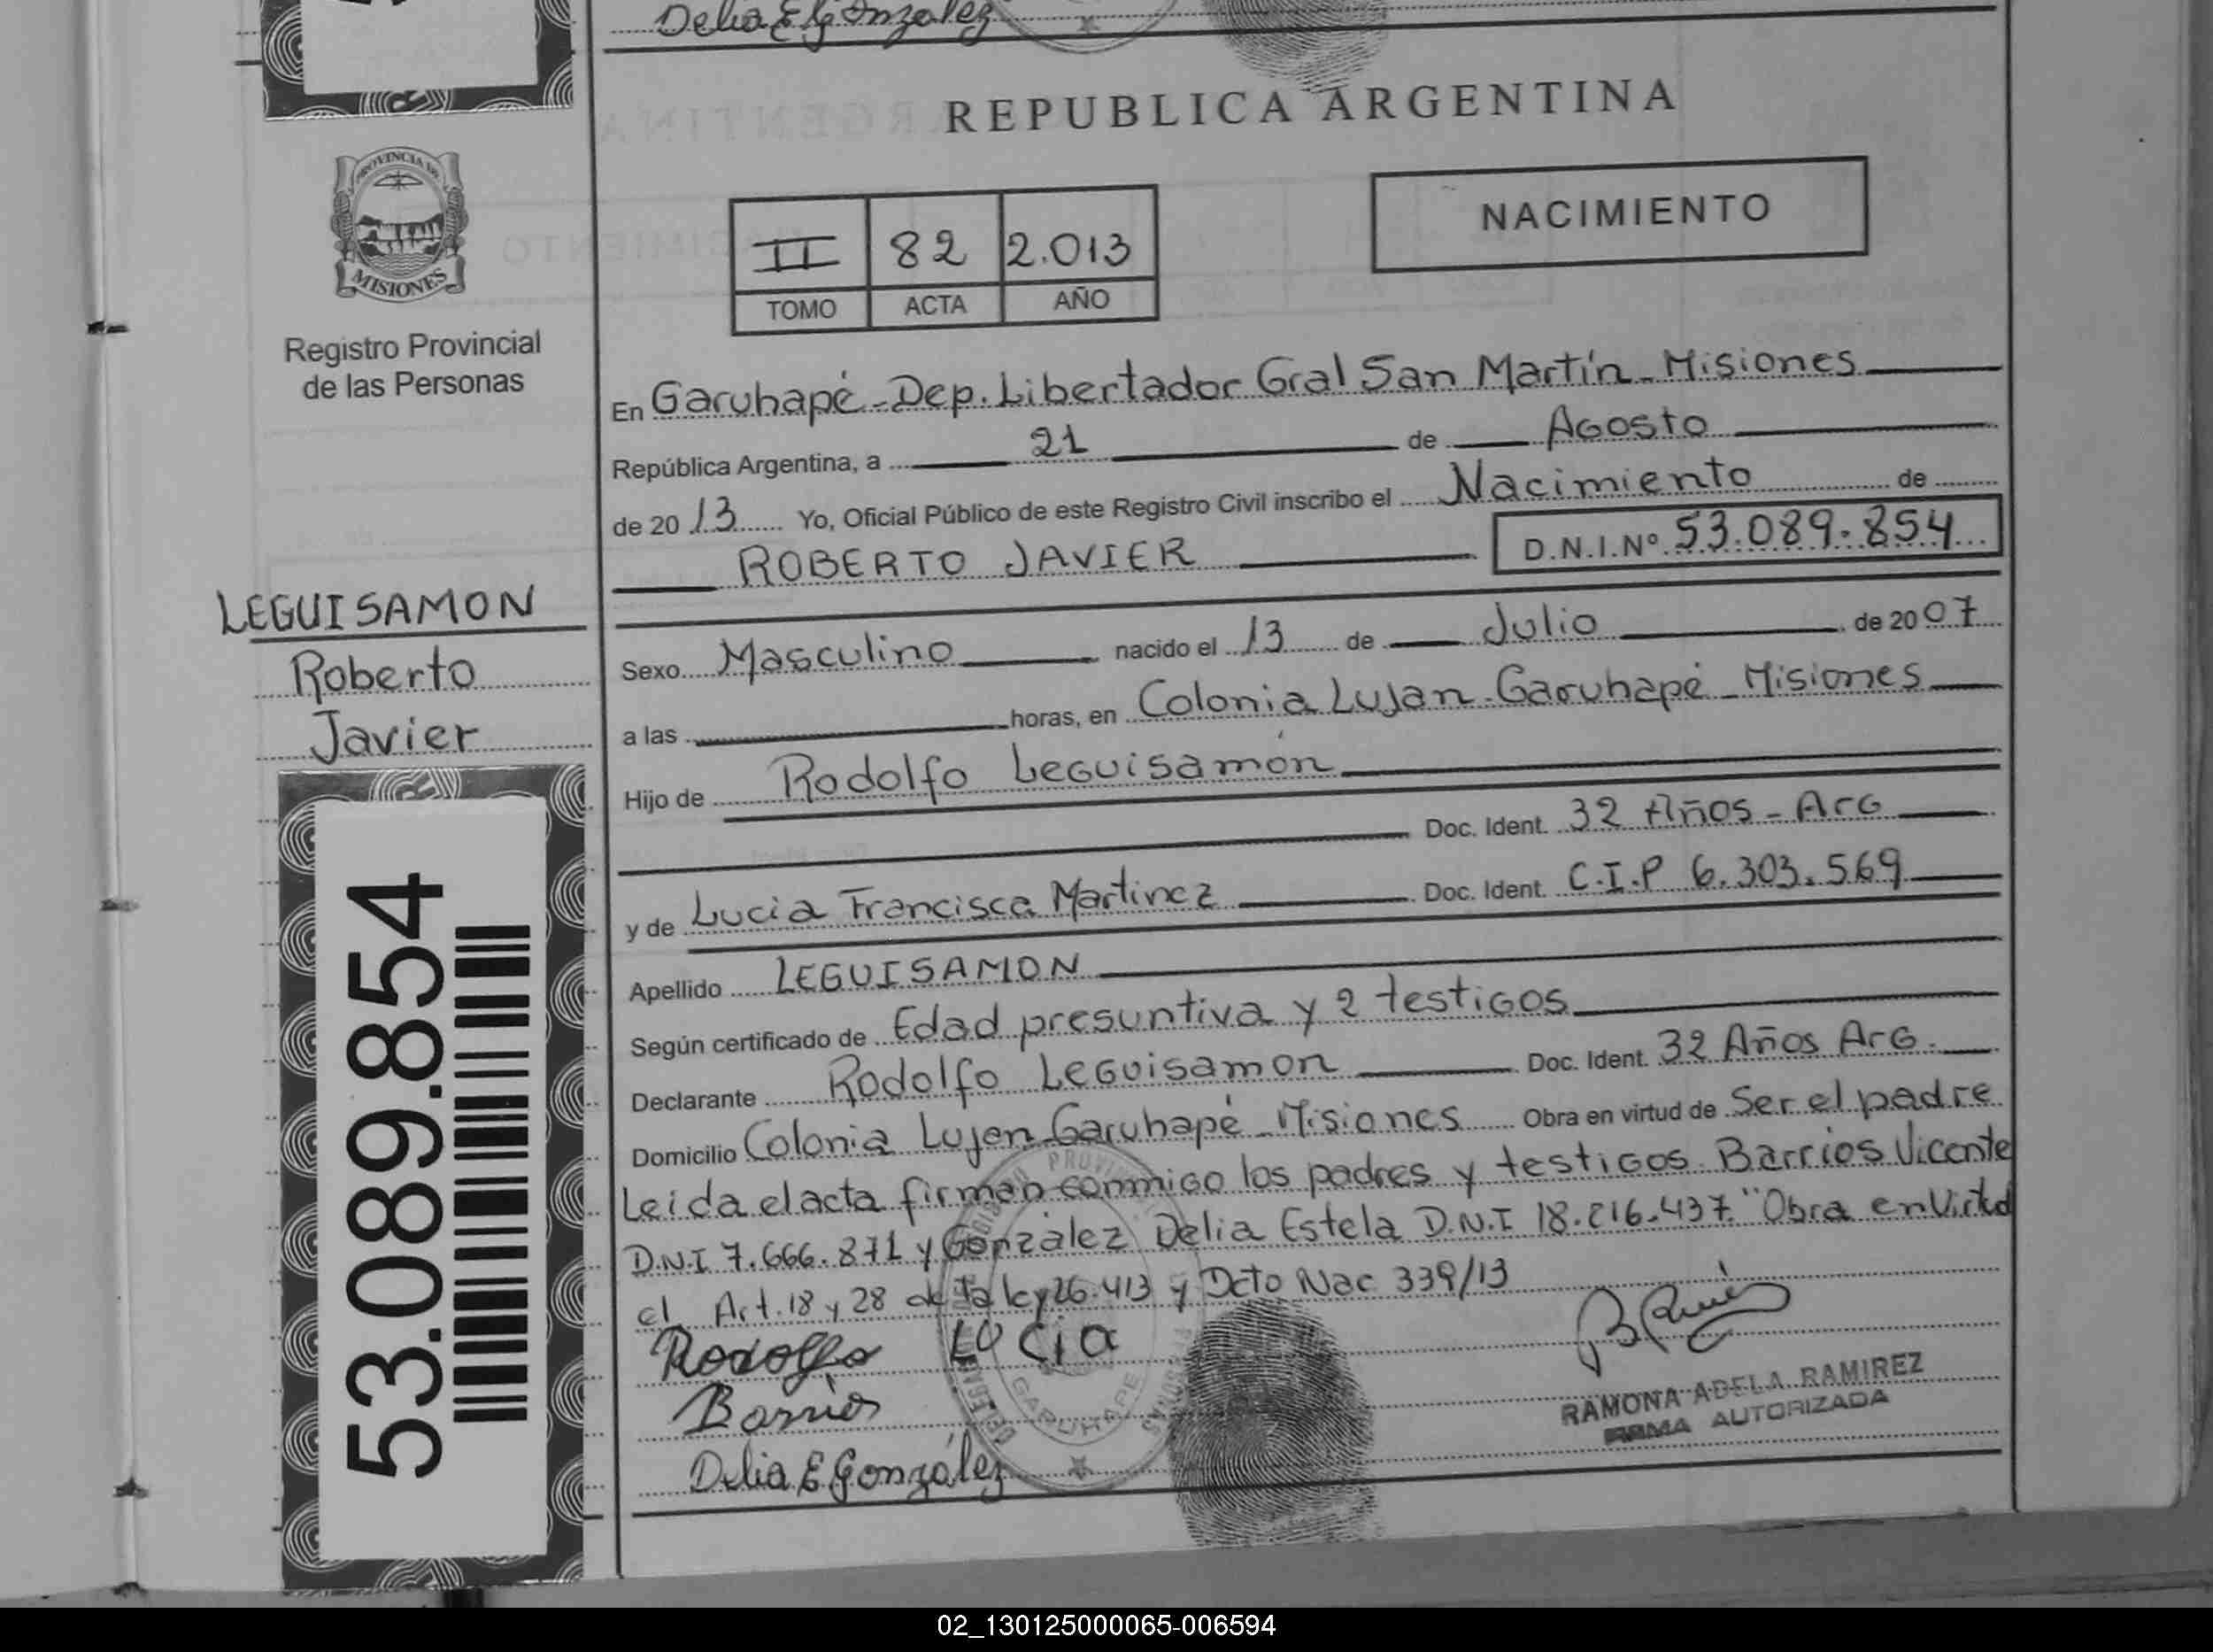 Delia E González
REPUBLICA ARGENTINA
PROVINCIA DE
MISIONES
Registro Provincial
de las Personas
II 82 2.013
TOMO ACTA AÑO
NACIMIENTO
En Garuhapé - Dep. Libertador Gral San Martín - Misiones
República Argentina, a 21 de Agosto
de 2013 Yo, Oficial Público de este Registro Civil inscribo el Nacimiento de
ROBERTO JAVIER D.N.I.Nº 53.089.854
LEGUISAMON
Roberto
Javier
53.089.854
Sexo Masculino nacido el 13 de Julio de 2007
a las horas, en Colonia Lujan - Garuhapé - Misiones
Hijo de Rodolfo Leguisamón
Doc. Ident. 32 Años - Arg
y de Lucia Francisca Martinez Doc. Ident. C.I.P 6.303.569
Apellido LEGUISAMON
Según certificado de Edad presuntiva y 2 testigos
Declarante Rodolfo Leguisamon Doc. Ident. 32 Años Arg.
Domicilio Colonia Lujan - Garuhapé - Misiones Obra en virtud de Ser el padre
Leida el acta firman conmigo los padres y testigos Barrios Vicente
D.N.I 7.666.871 y González Delia Estela D.N.I 18.216.437. "Obra en Virtud
el Art. 18 y 28 de la ley 26.413 y Dcto Nac 339/13
Rodolfo Lucia
Barrios
Delia E González
GARUHAPE
RAMONA ADELA RAMIREZ
FIRMA AUTORIZADA
02_130125000065-006594